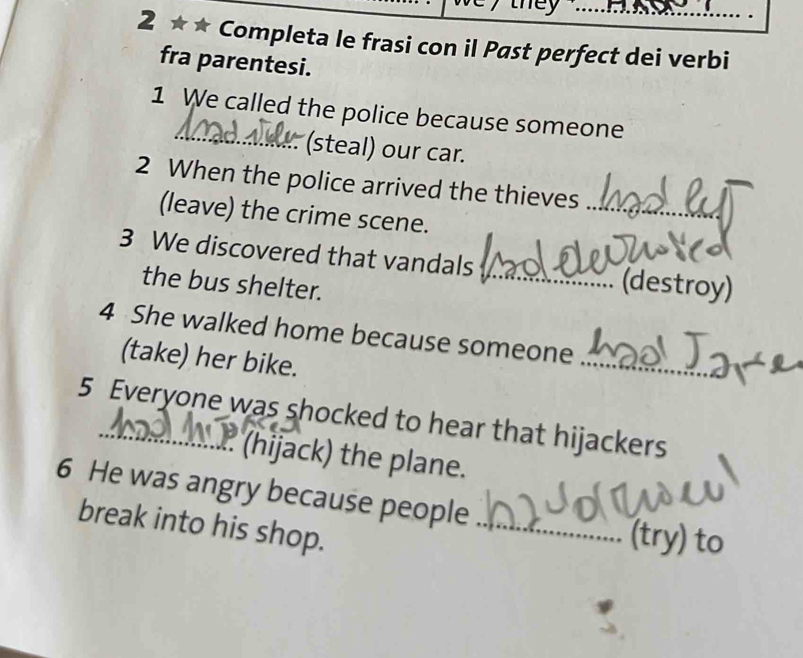 we / they
2 ★★ Completa le frasi con il Past perfect dei verbi
fra parentesi.
1 We called the police because someone
had (steal) our car.
2 When the police arrived the thieves had left
(leave) the crime scene.
3 We discovered that vandals had
(destroy)
the bus shelter.
4 She walked home because someone had
(take) her bike.
5 Everyone was shocked to hear that hijackers
had (hijack) the plane.
6 He was angry because people
(try) to
break into his shop.